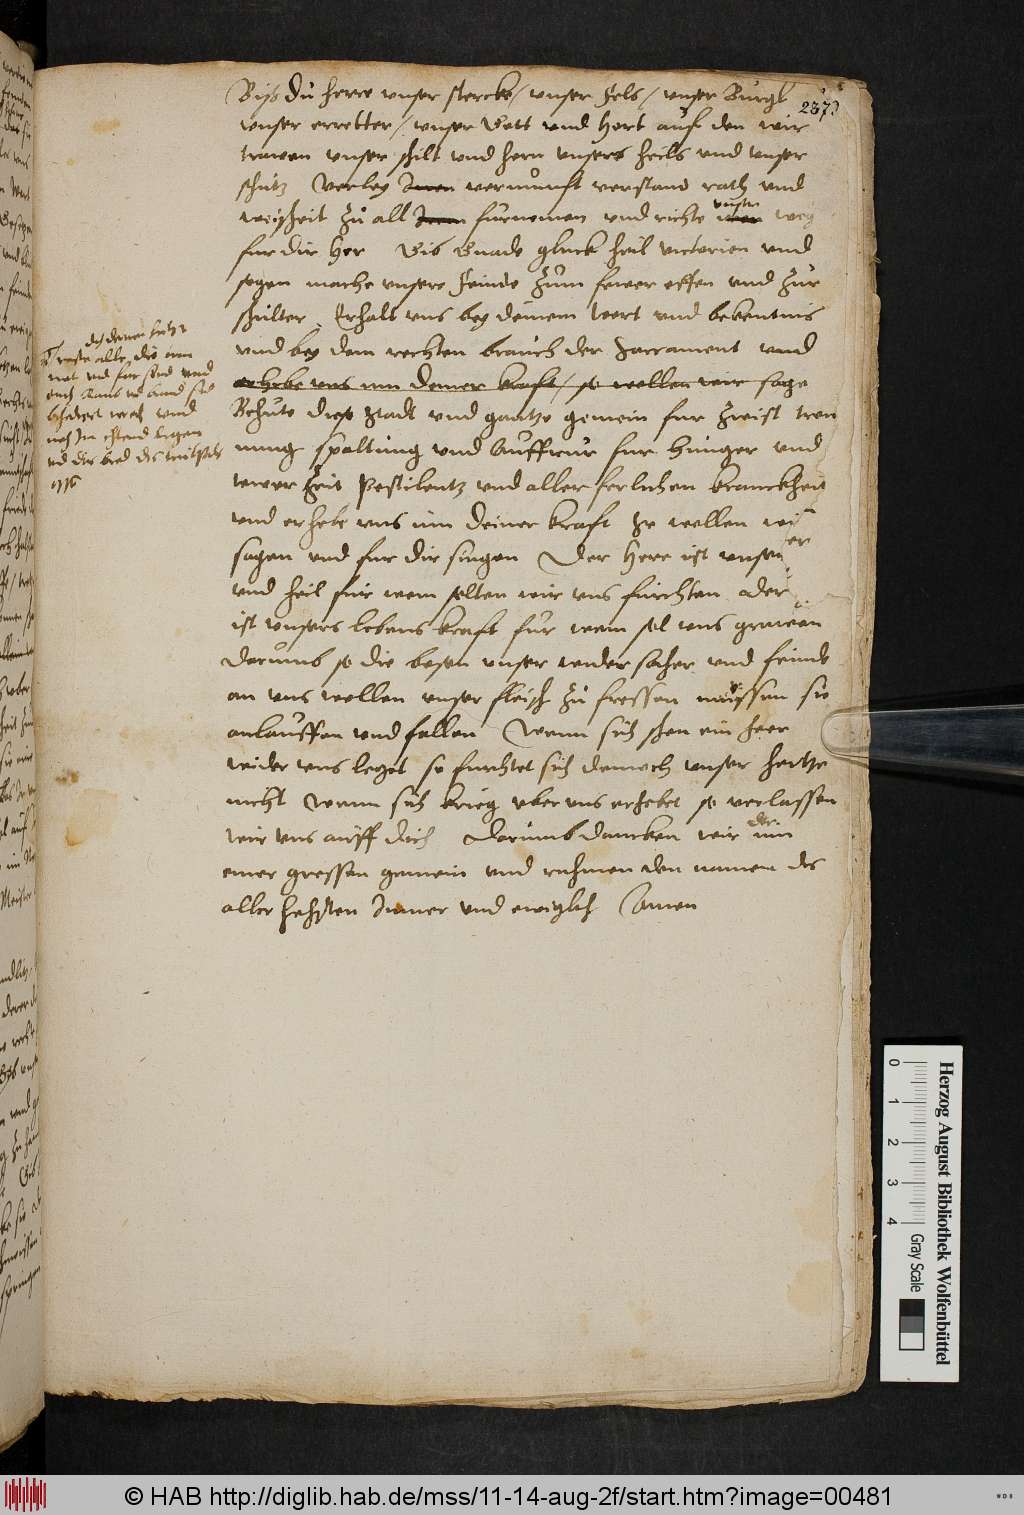 Biß du herre vnser stercke / vnser fels / vnser Burgk
237
vnser erretter / vnser Gott vnd hort auf den wir
trawen vnser schilt vnd horn vnsers heils vnd vnser
schutz Verley vernunfft verstand rath vnd
weißheit zu all furnemen vnd richte vnsern weg
fur dir her Gib Gnade gluck heil victorien vnd
segen mache vnsere feinde zum fewer offen vnd zur
schulter Erhalt vns bey deinem wort vnd bekentnis
vnd bey dem rechten brauch der sacrament vnd
erhebe vns inn deiner krafft / so wollen wir sage
Behute diese Stadt vnd gantze gemein fur zwist tren
nung spaltung vnd Auffrur fur hunger vnd
tewer zeit Pestilentz vnd aller ferlichen kranckheit
vnd erhebe vns inn deiner kraft so wollen wir
sagen vnd fur dir singen Der Here ist vnser
vnd heil fur wem solten wir vns furchten der
ist vnsers lebens kraft fur wem sol vns grawen
Darumb so die bosen vnser widersacher vnd feinde
an vns wollen vnser fleisch zu fressen mussen sie
anlauffen vnd fallen Wenn sich schon ein heer
wider vns leget so furchtet sich dennoch vnser hertze
nicht Wenn sich krieg vber vns erhebet so verlassen
wir vns auff dich Darumb dancken wir dir inn
einer grossen gemein vnd ruhmen den namen des
aller hohsten Immer vnd ewiglich Amen
alle die inn
not vnd fur sind vnd
vnd
Herzog August Bibliothek Wolfenbüttel
0 1 2 3 4
Gray Scale
© HAB http://diglib.hab.de/mss/11-14-aug-2f/start.htm?image=00481